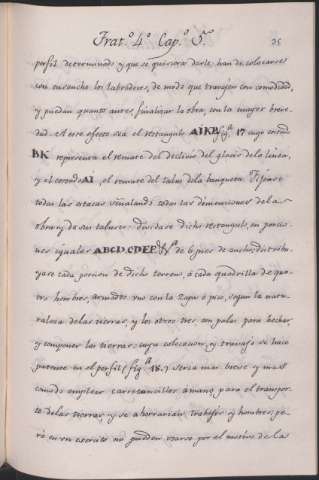 Trat.º 4.º Cap.º 3.º
25
perfil determinado y que se quisiera darle, han de colocarse
con ensanche los labradores, de modo que travajen con comodidad,
y puedan quanto antes, finalizar la obra, con la mayor breve-
dad. A este efecto sea el rectangulo AIKB fig.ª 17 cuyo costado
BK representa el remate del declivio del glacis de la linea,
y el costado AI, el remate del talus de la banqueta. Fixense
todas las estacas señalando todas las dimensiones de la
obra y de sus talures: dividase dicho rectangulo, en porcio-
nes iguales ABCD, CDEF, &ª de 6 pies de ancho, distribu-
yase cada porcion de dicho terreno, á cada quadrilla de qua-
tro hombres, armados uno con la zapa ó pico, segun la natu-
raleza de las tierras, y los otros tres con palas para hechar,
y componer las tierras: cuya colocacion, y travajo se hace
patente en el perfil (fig.ª 18.) seria mas breve y mas
comodo emplear carretoncillos á mano, para el transpor-
te de las tierras, y se ahorrarian, trabajo, y hombres; pe-
ro en un exercito no pueden usarse por el motivo de la